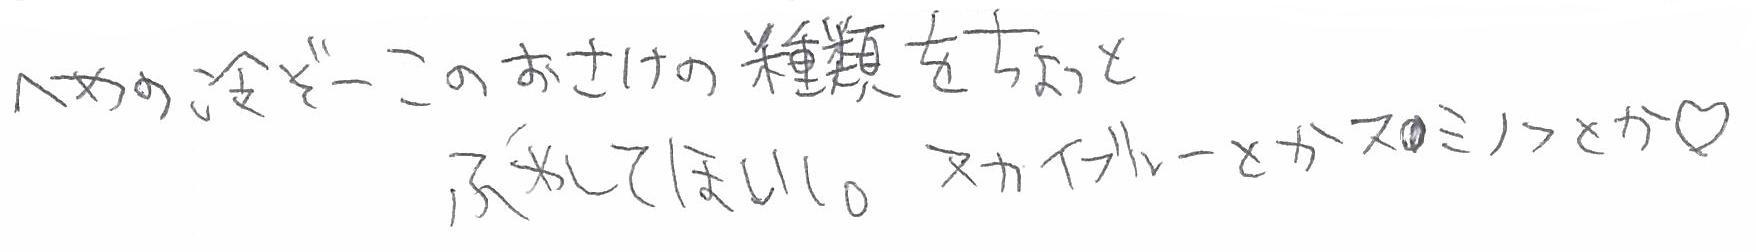 へやの冷ぞーこのおさけの種類をちょっと
ふやしてほしい。スカイブルーとかスロミノフとか♡